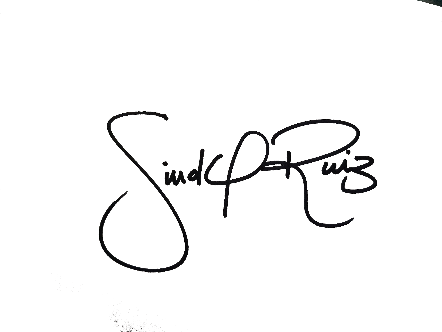 Sindy Ruiz